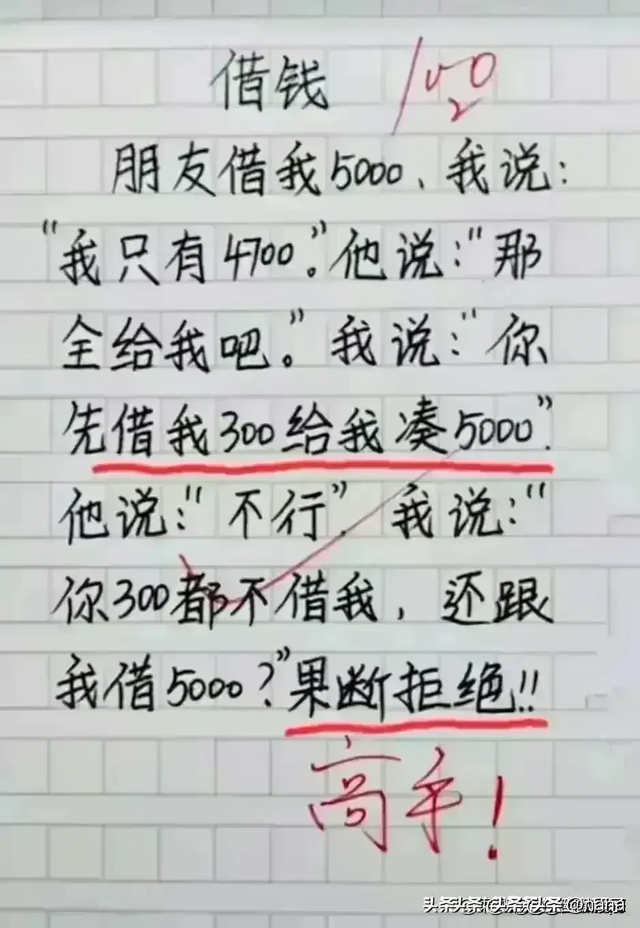 借钱
100
2
朋友借我5000、我说：
“我只有4700。”他说：“那
全给我吧。”我说：“你
先借我300给我凑5000”.
他说：“不行”. 我说：“
你300都不借我，还跟
我借5000？”果断拒绝!!
高手！